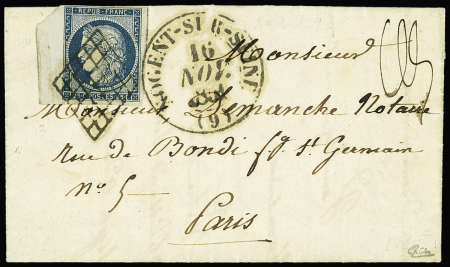 REPUB. FRANC.
NOGENT-SUR-SEINE
16
NOV.
(9)
Monsieur
Monsieur Demanche Notaire
rue de Bondi f.g St Germain
n° 5
Paris